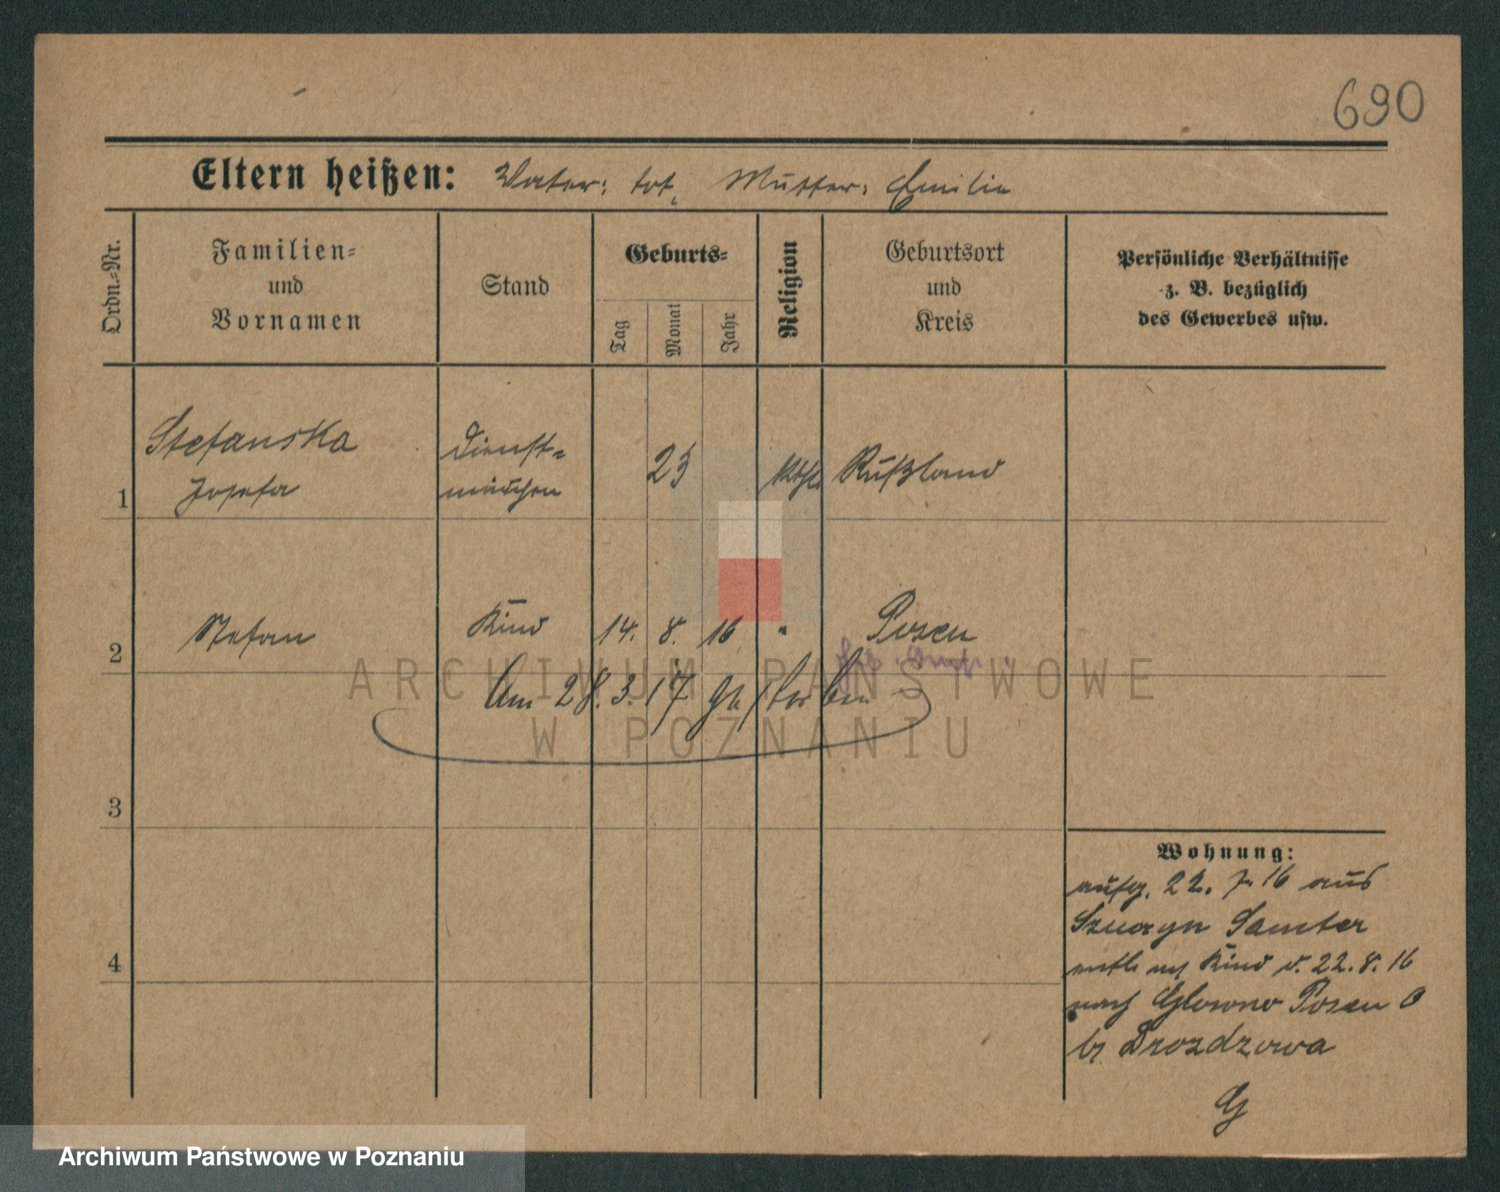 690
Eltern heißen: Vater: tot, Mutter: Emilie
Ordn.-Nr.
Familien-
und
Vornamen
Stand
Geburts-
Tag
Monat
Jahr
Religion
Geburtsort
und
Kreis
Persönliche Verhältnisse
z. B. bezüglich
des Gewerbes usw.
1
Stefanska
Josefa
Dienst-
mädchen
23
kath.
Rußland
2
Stefan
Kind
14. 8. 16
"
Posen
Am 28.3.17 gestorben
3
4
Wohnung:
aufg. 22. 7. 16 aus
Samter
Kind d. 22. 8. 16
nach Glowno Posen O
b/ Drozdzowa
G
ARCHIWUM PAŃSTWOWE
W POZNANIU
Archiwum Państwowe w Poznaniu